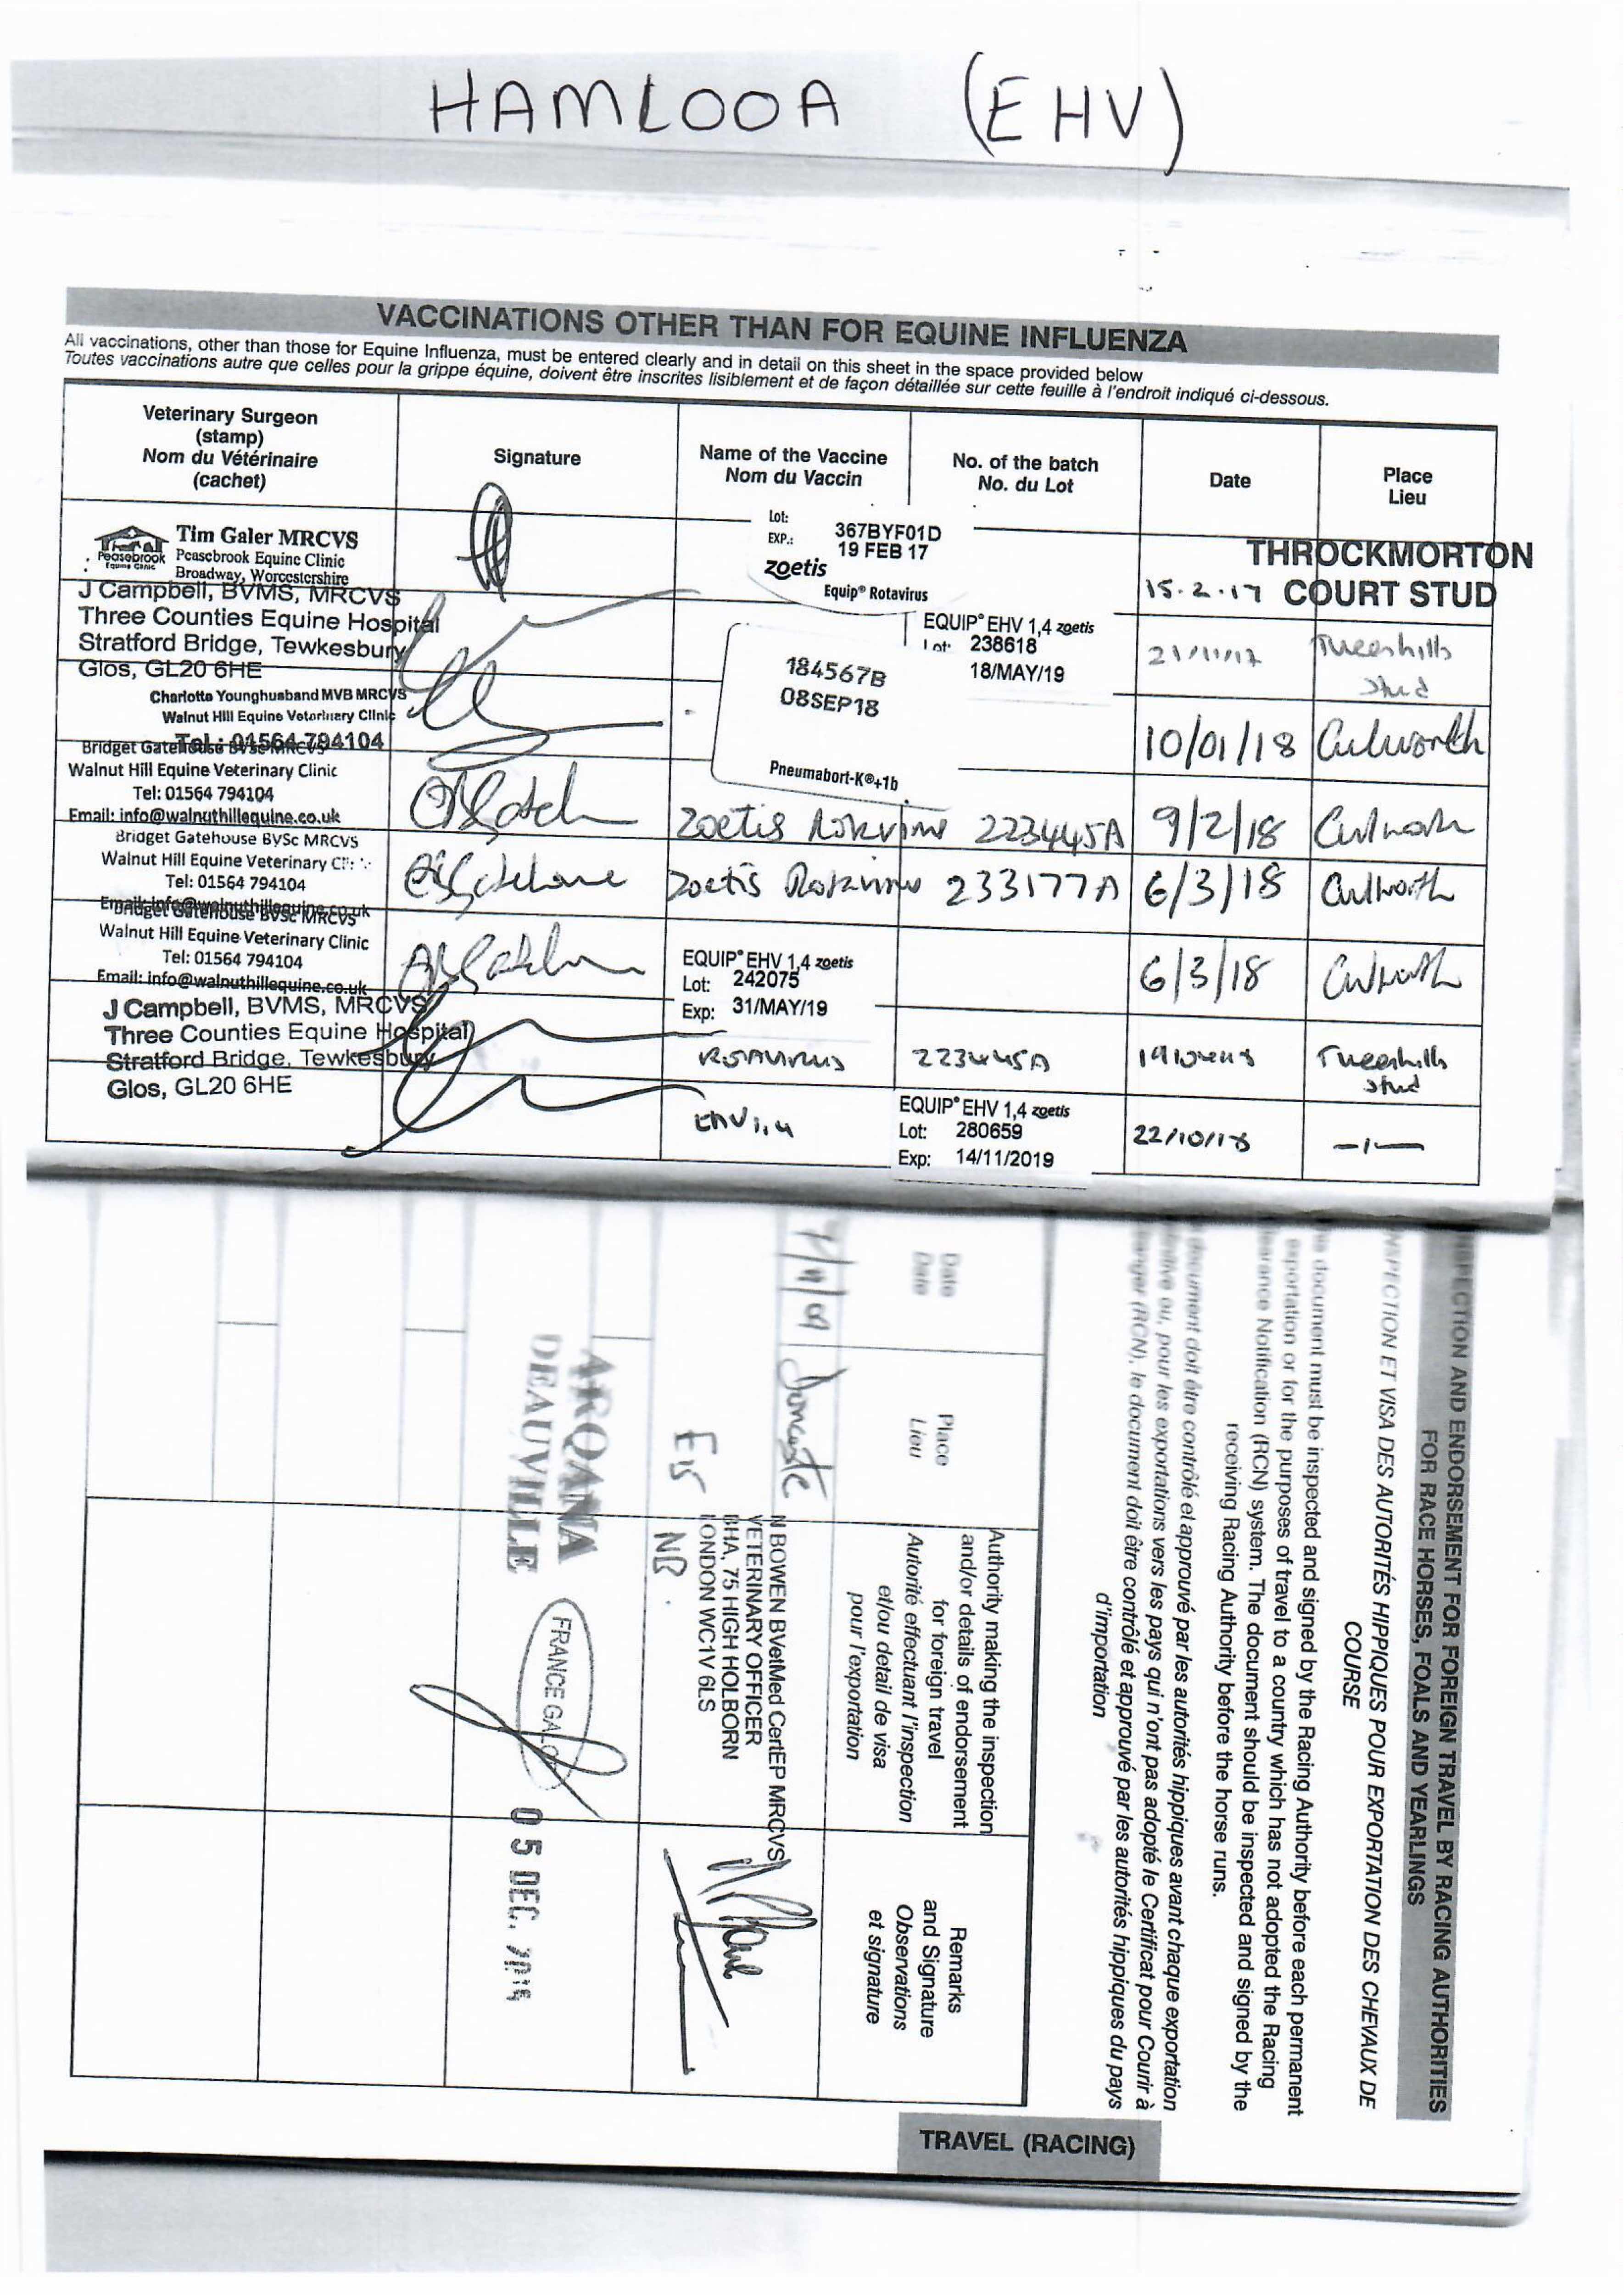 HAMLOOA (EHV)
VACCINATIONS OTHER THAN FOR EQUINE INFLUENZA
All vaccinations, other than those for Equine Influenza, must be entered clearly and in detail on this sheet in the space provided below
Toutes vaccinations autre que celles pour la grippe équine, doivent être inscrites lisiblement et de façon détaillée sur cette feuille à l'endroit indiqué ci-dessous.
Veterinary Surgeon
(stamp)
Nom du Vétérinaire
(cachet)
Signature
Name of the Vaccine
Nom du Vaccin
No. of the batch
No. du Lot
Date
Place
Lieu
Tim Galer MRCVS
Peasebrook Equine Clinic
Broadway, Worcestershire
Peasebrook
Equine Clinic
Lot: 367BYF01D
EXP.: 19 FEB 17
zoetis
Equip® Rotavirus
15.2.17
THROCKMORTON
COURT STUD
J Campbell, BVMS, MRCVS
Three Counties Equine Hospital
Stratford Bridge, Tewkesbury
Glos, GL20 6HE
EQUIP® EHV 1,4 zoetis
Lot: 238618
18/MAY/19
21/11/17
Tweenhills
Stud
Charlotte Younghusband MVB MRCVS
Walnut Hill Equine Veterinary Clinic
Tel: 01564 794104
184567B
08SEP18
Pneumabort-K®+1b
10/01/18 Culworth
Bridget Gatehouse BVSc MRCVS
Walnut Hill Equine Veterinary Clinic
Tel: 01564 794104
Email: info@walnuthillequine.co.uk
Zoetis 223445A 9/2/18 Culworth
Bridget Gatehouse BVSc MRCVS
Walnut Hill Equine Veterinary
Tel: 01564 794104
Email: info@walnuthillequine.co.uk
Zoetis 233177A 6/3/18 Culworth
Bridget Gatehouse BVSc MRCVS
Walnut Hill Equine Veterinary Clinic
Tel: 01564 794104
Email: info@walnuthillequine.co.uk
EQUIP® EHV 1,4 zoetis
Lot: 242075
Exp: 31/MAY/19
6/3/18 Culworth
J Campbell, BVMS, MRCVS
Three Counties Equine Hospital
Stratford Bridge, Tewkesbury
Glos, GL20 6HE
ROTAVIRUS 223445A
Tweenhills
Stud
EHV 1,4
EQUIP® EHV 1,4 zoetis
Lot: 280659
Exp: 14/11/2019
22/10/18
INSPECTION AND ENDORSEMENT FOR FOREIGN TRAVEL BY RACING AUTHORITIES
FOR RACE HORSES, FOALS AND YEARLINGS
INSPECTION ET VISA DES AUTORITÉS HIPPIQUES POUR EXPORTATION DES CHEVAUX DE
COURSE
document must be inspected and signed by the Racing Authority before each permanent
exportation or for the purposes of travel to a country which has not adopted the Racing
Clearance Notification (RCN) system. The document should be inspected and signed by the
receiving Racing Authority before the horse runs.
document doit être contrôlé et approuvé par les autorités hippiques avant chaque exportation
définitive ou, pour les exportations vers les pays qui n'ont pas adopté le Certificat pour Courir à
l'Etranger (RCN), le document doit être contrôlé et approuvé par les autorités hippiques du pays
d'importation
Date
Date
Place
Lieu
Authority making the inspection
and/or details of endorsement
for foreign travel
Autorité effectuant l'inspection
et/ou detail de visa
pour l'exportation
Remarks
and Signature
Observations
et signature
N BOWEN BVetMed CertEP MRCVS
VETERINARY OFFICER
BHA, 75 HIGH HOLBORN
LONDON WC1V 6LS
ARQANA
DEAUVILLE
FRANCE GALOP
05 DEC.
TRAVEL (RACING)